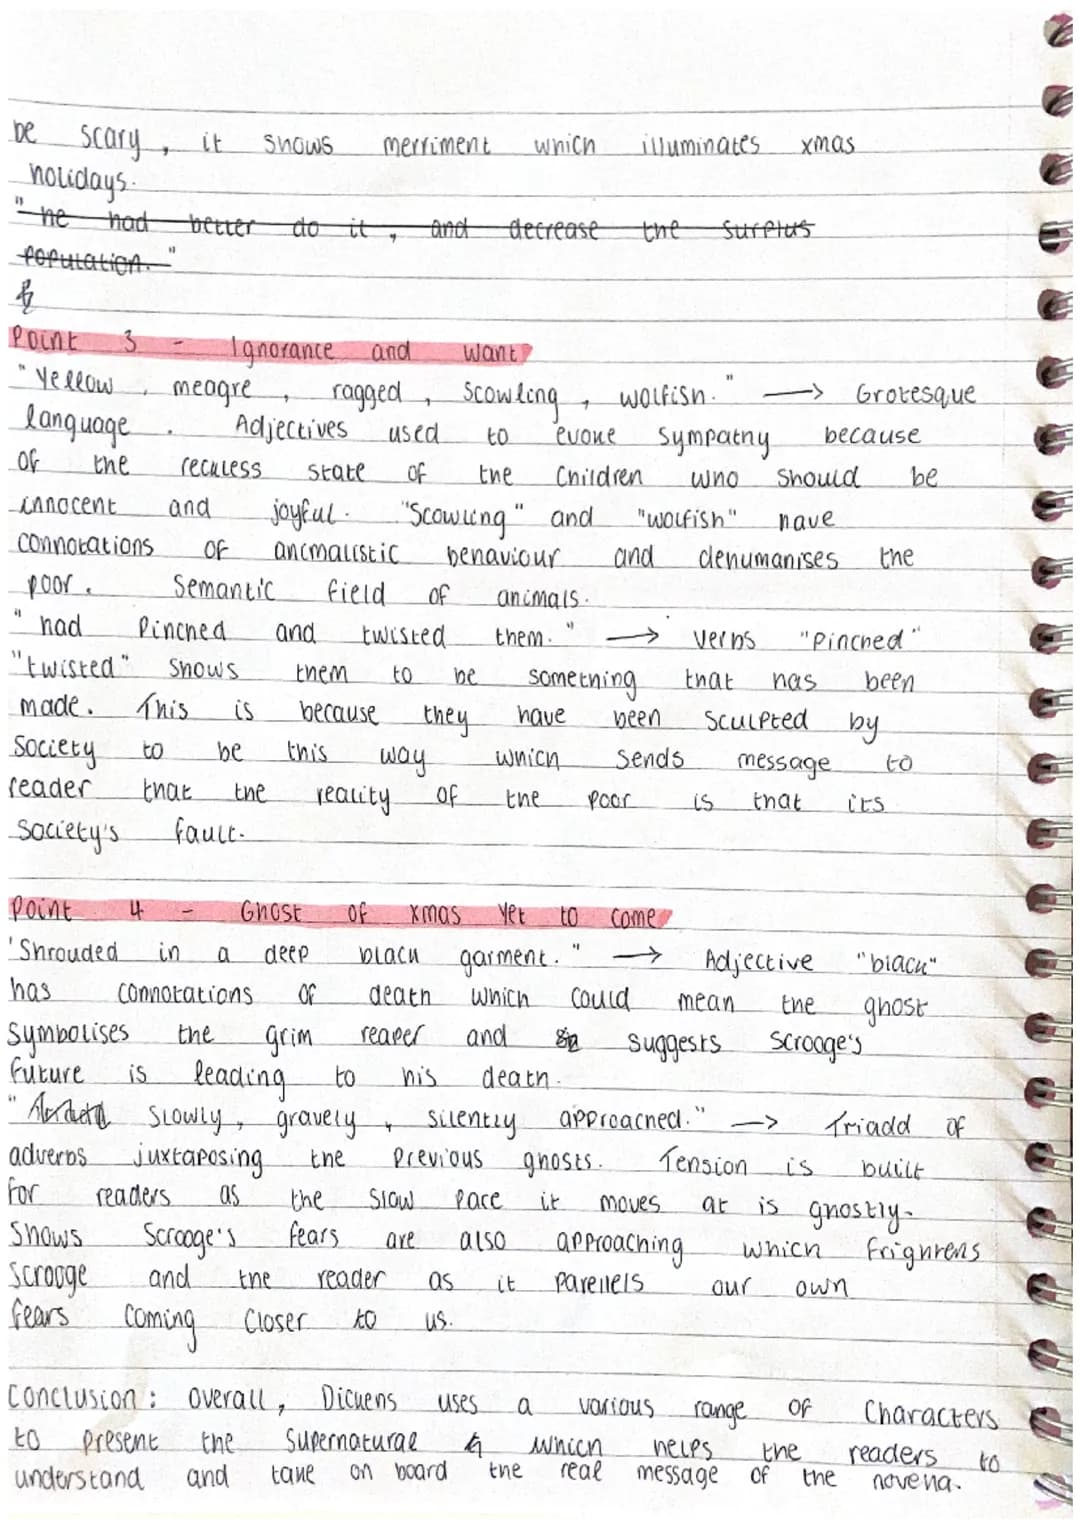 be scary, it shows merriment which illuminates xmas
holidays.
"he had better do it, and decrease the surplus
population."
Point 3 - Ignorance and Want
"Yellow, meagre, ragged, scowling, wolfish." → Grotesque
language. Adjectives used to evoke sympathy because
of the reckless state of the children who should be
innocent and joyful. "Scowling" and "wolfish" have
connotations of anamalistic behaviour and dehumanises the
poor. Semantic field of animals.
"had Pinched and twisted them." → verbs "Pinched"
"twisted" shows them to be something that has been
made. This is because they have been sculpted by
society to be this way which sends message to
reader that the reality of the poor is that its
society's fault.
Point 4 - Ghost of xmas Yet to come
'Shrouded in a deep black garment." → Adjective "black"
has connotations of death which could mean the ghost
symbolises the grim reaper and suggests Scrooge's
future is leading to his death.
" slowly, gravely, silently approached." → Triadd of
adverbs juxtaposing the previous ghosts. Tension is built
for readers as the slow pace it moves at is ghostly.
Shows Scrooge's fears are also approaching which frightens
Scrooge and the reader as it parellels our own
fears coming closer to us.
Conclusion: overall, Dickens uses a various range of characters
to present the supernatural which helps the readers to
understand and take on board the real message of the novella.